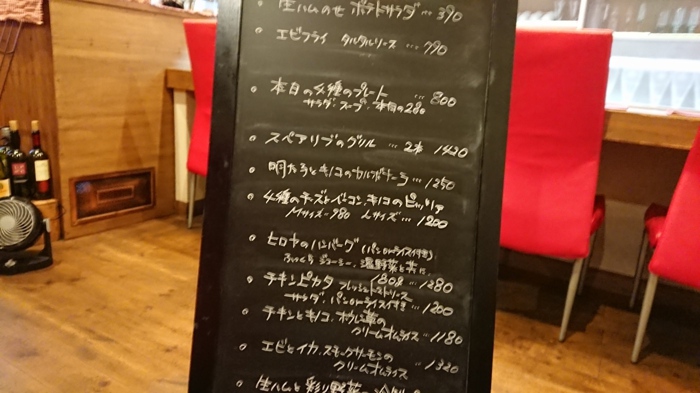 生ハムのせ ポテトサラダ … 390
エビフライ タルタルソース … 790
本日の4種のプレート … 800
サラダ、スープ、本日の2品
スペアリブのグリル … 2本 1420
明太子とキノコのカルボナーラ … 1250
4種のチーズとベーコン、キノコのピッツァ
Mサイズ … 980 Lサイズ … 1200
ヒロキのハンバーグ (パンorライス付き)
ふっくらジューシー、温野菜と共に
180g … 1280
チキンピカタ フレッシュトマトソース
サラダ、パンorライス付き … 1200
チキンとキノコ、ホウレン草の
クリームオムライス … 1180
エビとイカ、スモークサーモンの
クリームオムライス … 1320
生ハムと彩り野菜